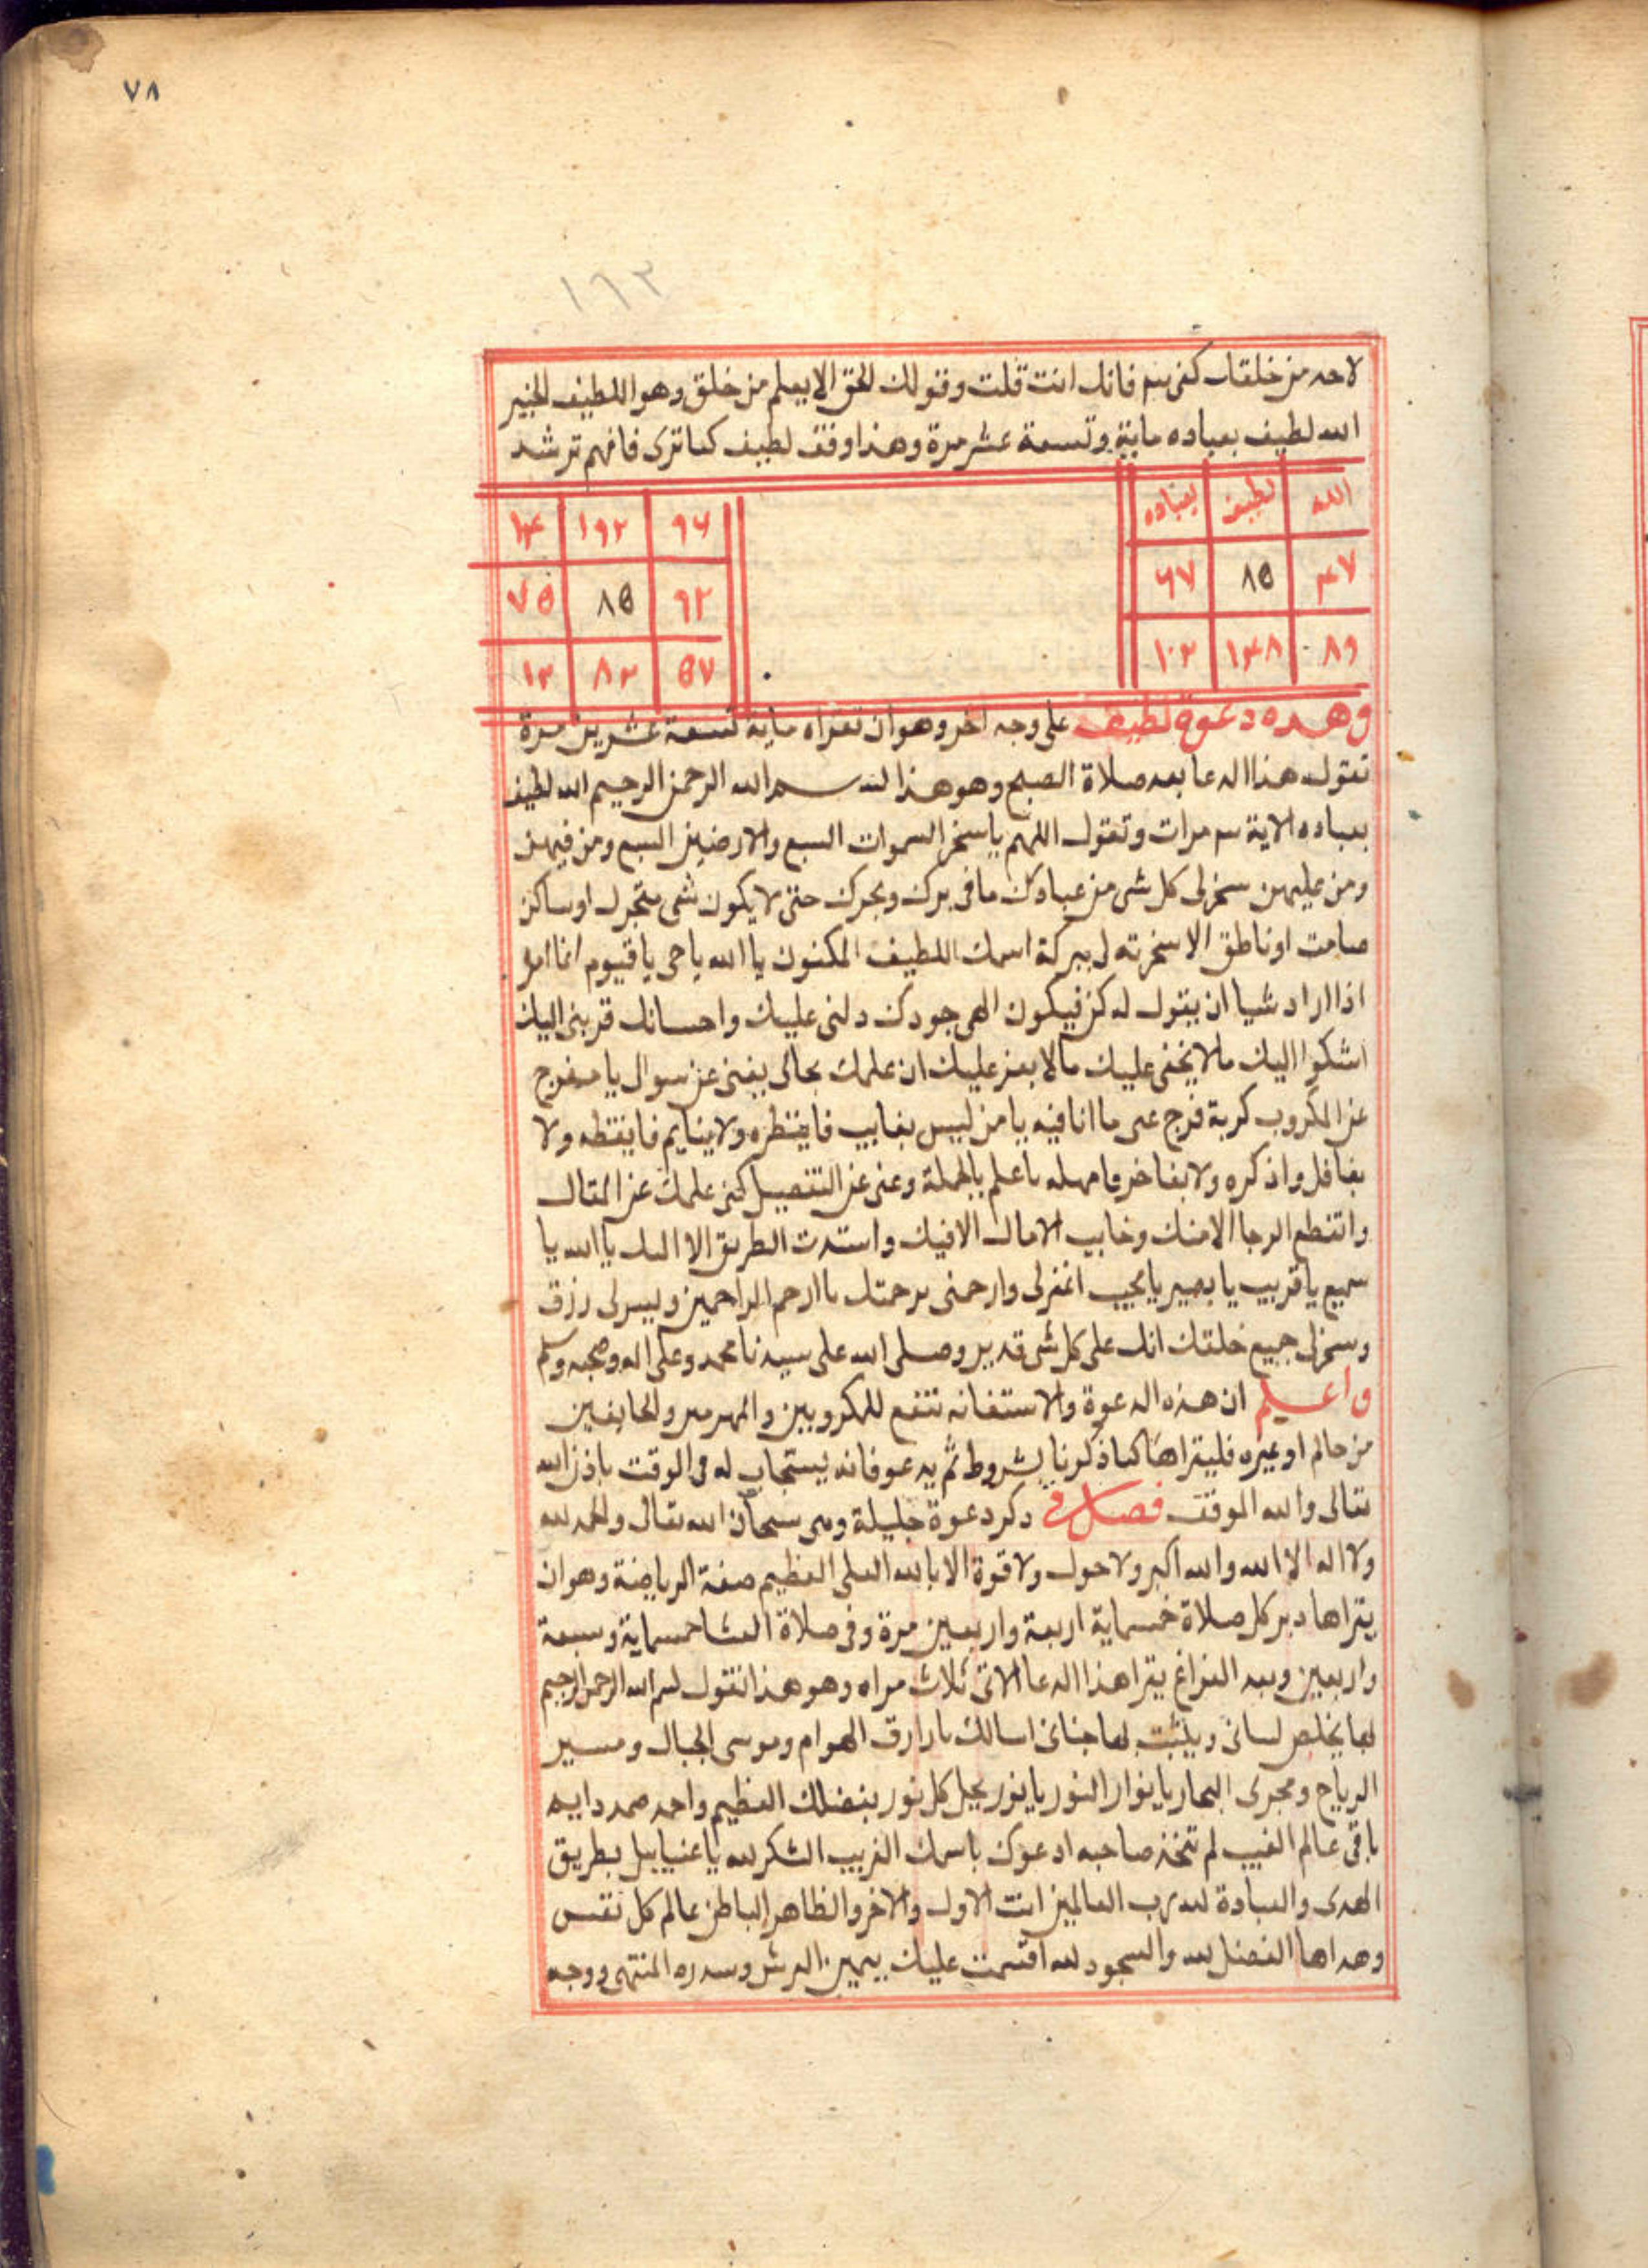 ٧٨
١٦٢
لاحد من خلقك كفى بهم فانك انت قلت وقولك الحق الا يعلم من خلق وهو اللطيف الخبير
الله لطيف بعباده ماية وتسعة عشر مرة وهذا وفق لطيف كما ترى فافهم ترشد
الله لطيف بعباده ٩٤ ١٩٢
٤٧ ٨٥ ٩٢ ٨٥ ٧٥
٨٩ ١٤٨ ١٠٢ ٥٧ ٨٢ ١٢
وهده دعوة لطيف على وجه اخر وهو ان تقراه ماية تسعة عشرين مرة
تقول هذا الدعا بعد صلاة الصبح وهو هذا بسم الله الرحمن الرحيم الله لطيف
بعباده الاية مرات وتقول اللهم يا سخر السموات السبع والارضين السبع ومن فيهن
ومن عليهن سخر لى كل شى من عبادك ما فى برك وبحرك حتى لا يكون شى متحرك او ساكن
صامت او ناطق الا سخرته لى ببركة اسمك اللطيف المكنون يا الله يا حى يا قيوم انما امره
اذا اراد شيا ان يقول له كن فيكون الهى جودك دلنى عليك واحسانك قربنى اليك
اشكوا اليك مالا يخفى عليك مالا يعز عليك ان علمك بحالى يغنى عن سوال يا مفرج
عن المكروب كربة فرج عنى ما انا فيه يا من ليس بغايب فاينتظره ولا ينايم فايقظه ولا
بغافل واذكره ولا بفاخر فامهله ياعلم بالجملة وغنى عن التفصيل كفى علمك عن المقال
وانقطع الرجا الا منك وخايب الامال الا فيك واستدت الطريق الا اليك يا الله يا
سميع يا قريب يا بصير يا مجيب اغفر لى وارحمنى برحمتك يا ارحم الراحمين ويسر لى رزق
وسخر لى جميع خلقك انك على كل شى قدير وصلى الله على سيدنا محمد وعلى اله وصحبه وسلم
واعلم ان هذه الدعوة والاستغاثه تنفع للمكروبين والمهرمين والخايفين
من حالم او غيره فليقراها كما ذكرنا بشروط ثم يدعو فانه يستجاب له فى الوقت باذن الله
تعالى والله الموفق فصل فى ذكر دعوة جليلة وهى سبحان الله تعالى والحمد لله
ولا اله الا الله والله اكبر ولا حول ولا قوة الا بالله العلى العظيم صفة الرياضة وهو ان
يقراها دبر كل صلاة خمسماية اربعة واربعين مرة وفى صلاة العشا خمسماية وسبعة
واربعين وبعد الفراغ يقرا هذا الدعا الاتى ثلاث مراه وهو هذا تقول بسم الله الرحمن الرحيم
بها يخلص لسانى ويثبت بها جنانى اسالك يا رازق الهوام وموسى الجبال ومسير
الرياح ومجرى البحار يا نوار النور يا نور يجل كل نور بفضلك العظيم واحد صمد دايم
باقى عالم الغيب لم تتخذ صاحبه ادعوك باسمك القريب الشكر لله يا عنياييل بطريق
الهدى والعبادة لله رب العالمين انت الاول والاخر والظاهر الباطن عالم كل نفس
وهداها الفضل لله والسجود لله اقسمت عليك بيمين العرش وسدره المنتهى ووجه